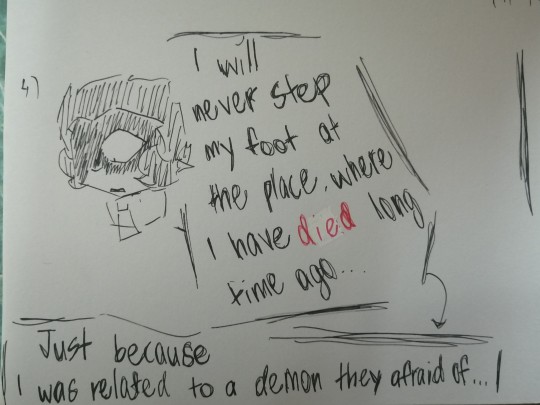 4)
I will
never step
my foot at
the place, where
I have died long
time ago...
Just because
I was related to a demon they afraid of...